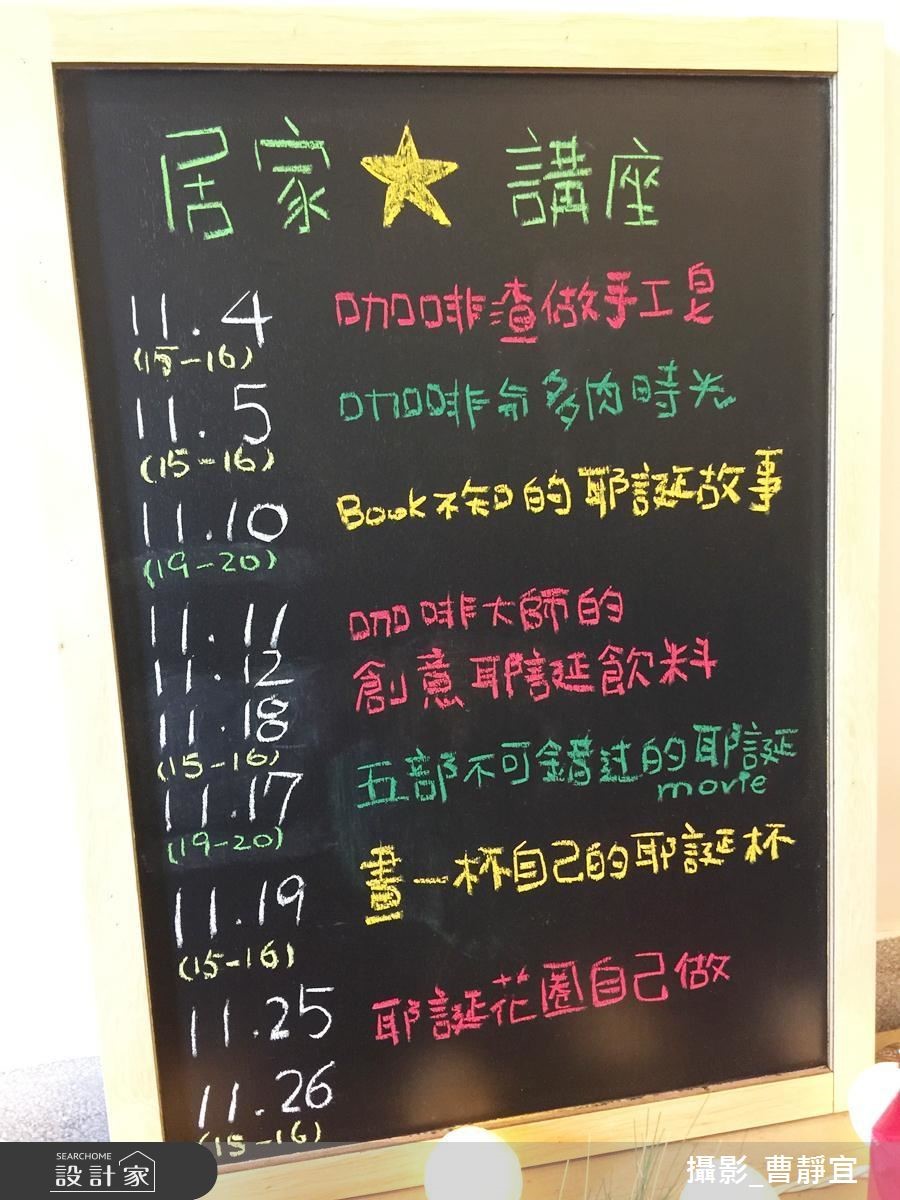 居家★講座
11.4 咖啡渣做手工皂
(15-16)
11.5 咖啡介多肉時光
(15-16)
11.10 Book不知的耶誕故事
(19-20)
11.11 咖啡大師的
11.12 創意耶誕飲料
11.18
(15-16)
11.17 五部不可錯过的耶誕
movie
(19-20)
11.19 畫一杯自己的耶誕杯
(15-16)
11.25 耶誕花圈自己做
11.26
(15-16)
SEARCHOME
設計家
攝影_曹靜宜